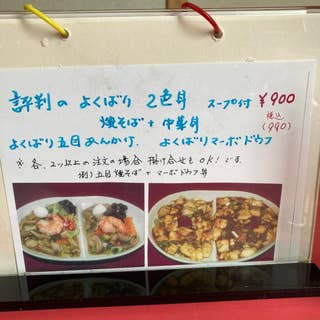 評判の よくばり 2色丼 スープ付 ¥900
焼そば + 中華丼 税込 (990)
よくばり五目あんかけ. よくばりマーボドウフ
※ 各、2ツ以上の注文の場合 掛け合せも OK! です.
例) 五目焼そば + マーボドウフ丼